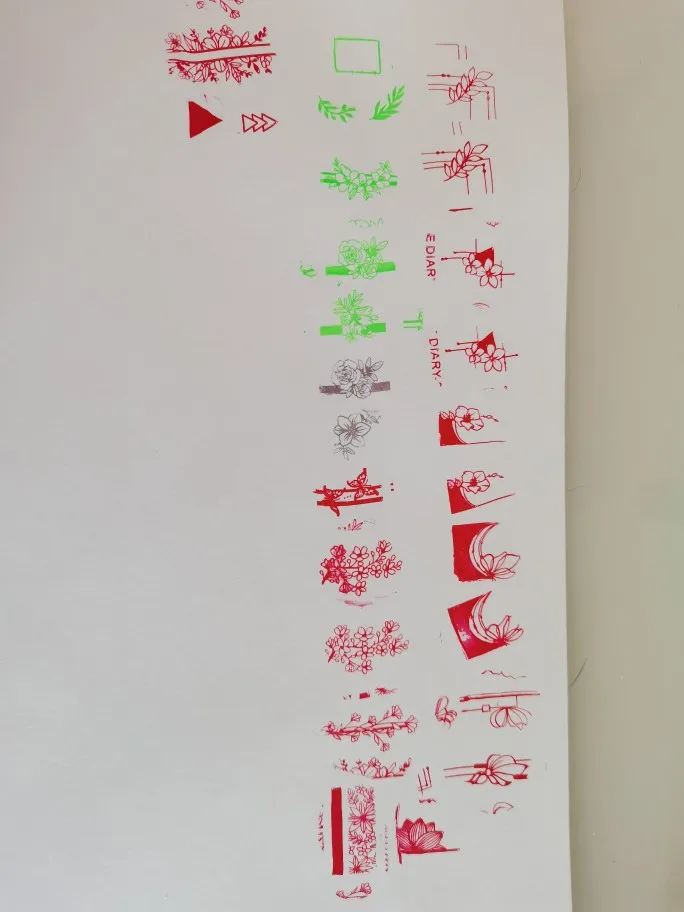 EDIAR
DIARY